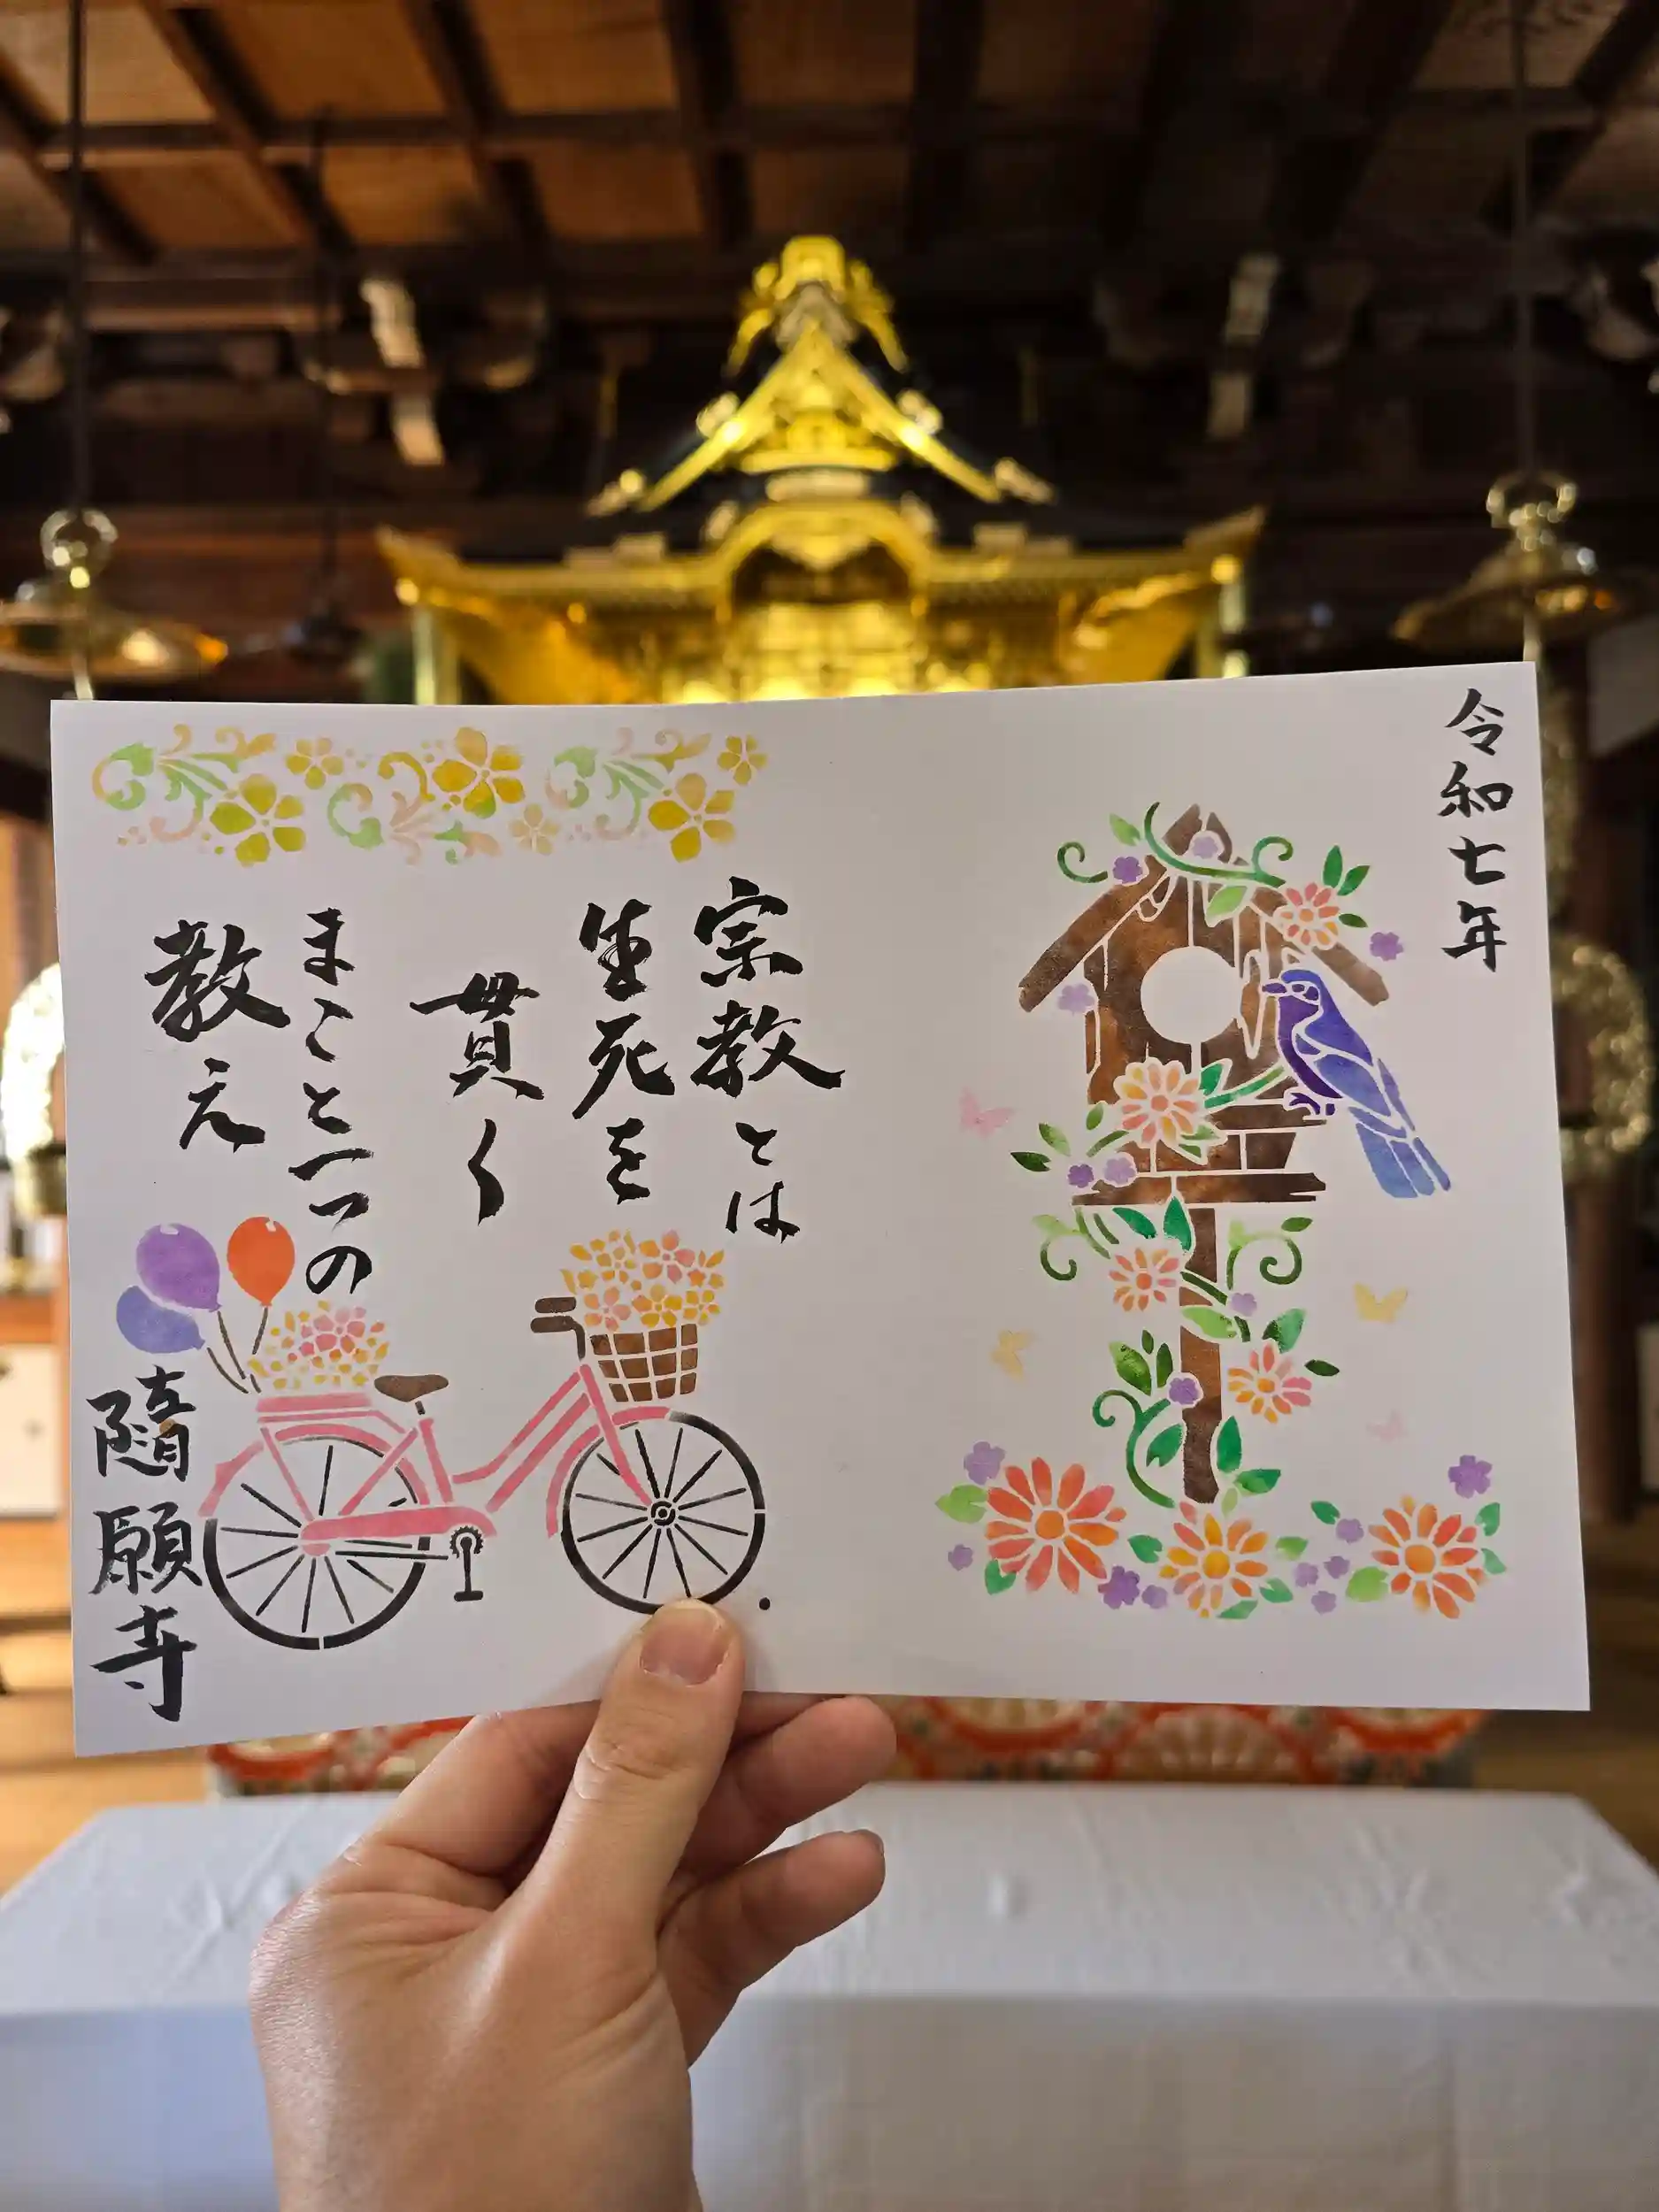 令和七年
宗教とは
生死を
貫く
まこと一つの
教え
随願寺